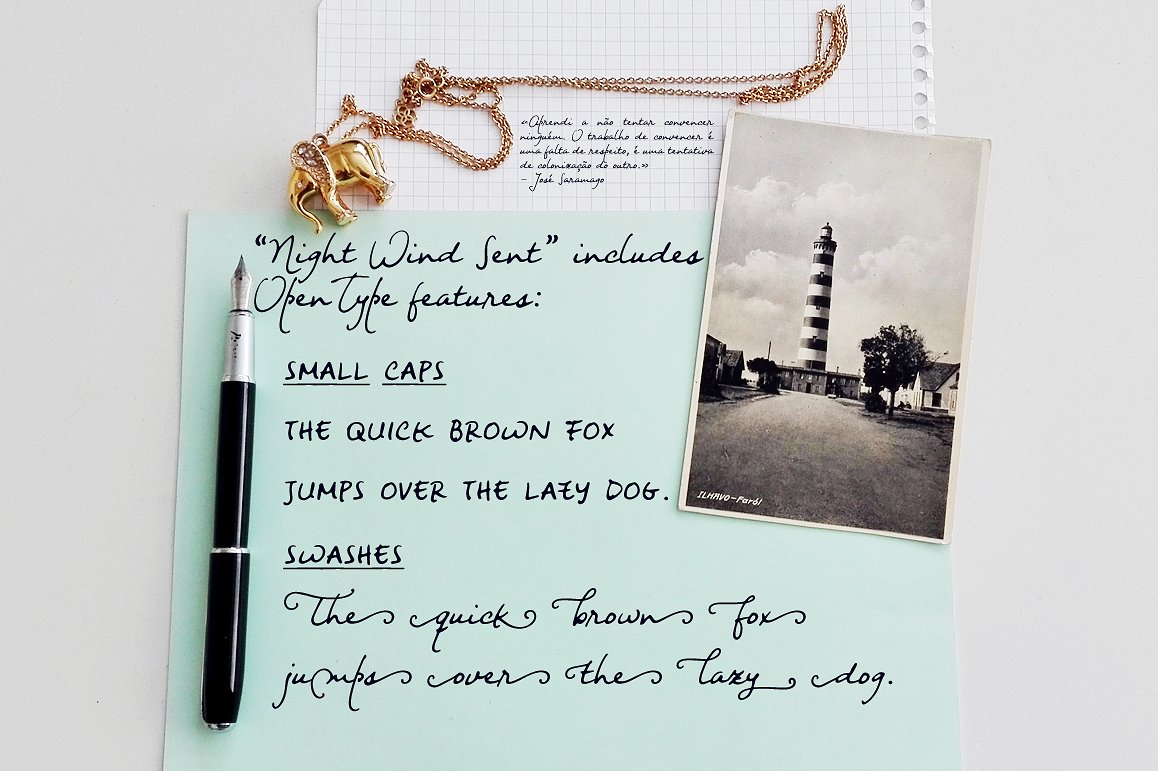 «Aprendi a não tentar convencer
ninguém. O trabalho de convencer é
uma falta de respeito, é uma tentativa
de colonização do outro.»
- José Saramago
“Night Wind Sent” includes
OpenType features:
SMALL CAPS
THE QUICK BROWN FOX
JUMPS OVER THE LAZY DOG.
SWASHES
The quick brown fox
jumps over the lazy dog.
ILHAVO-Faról